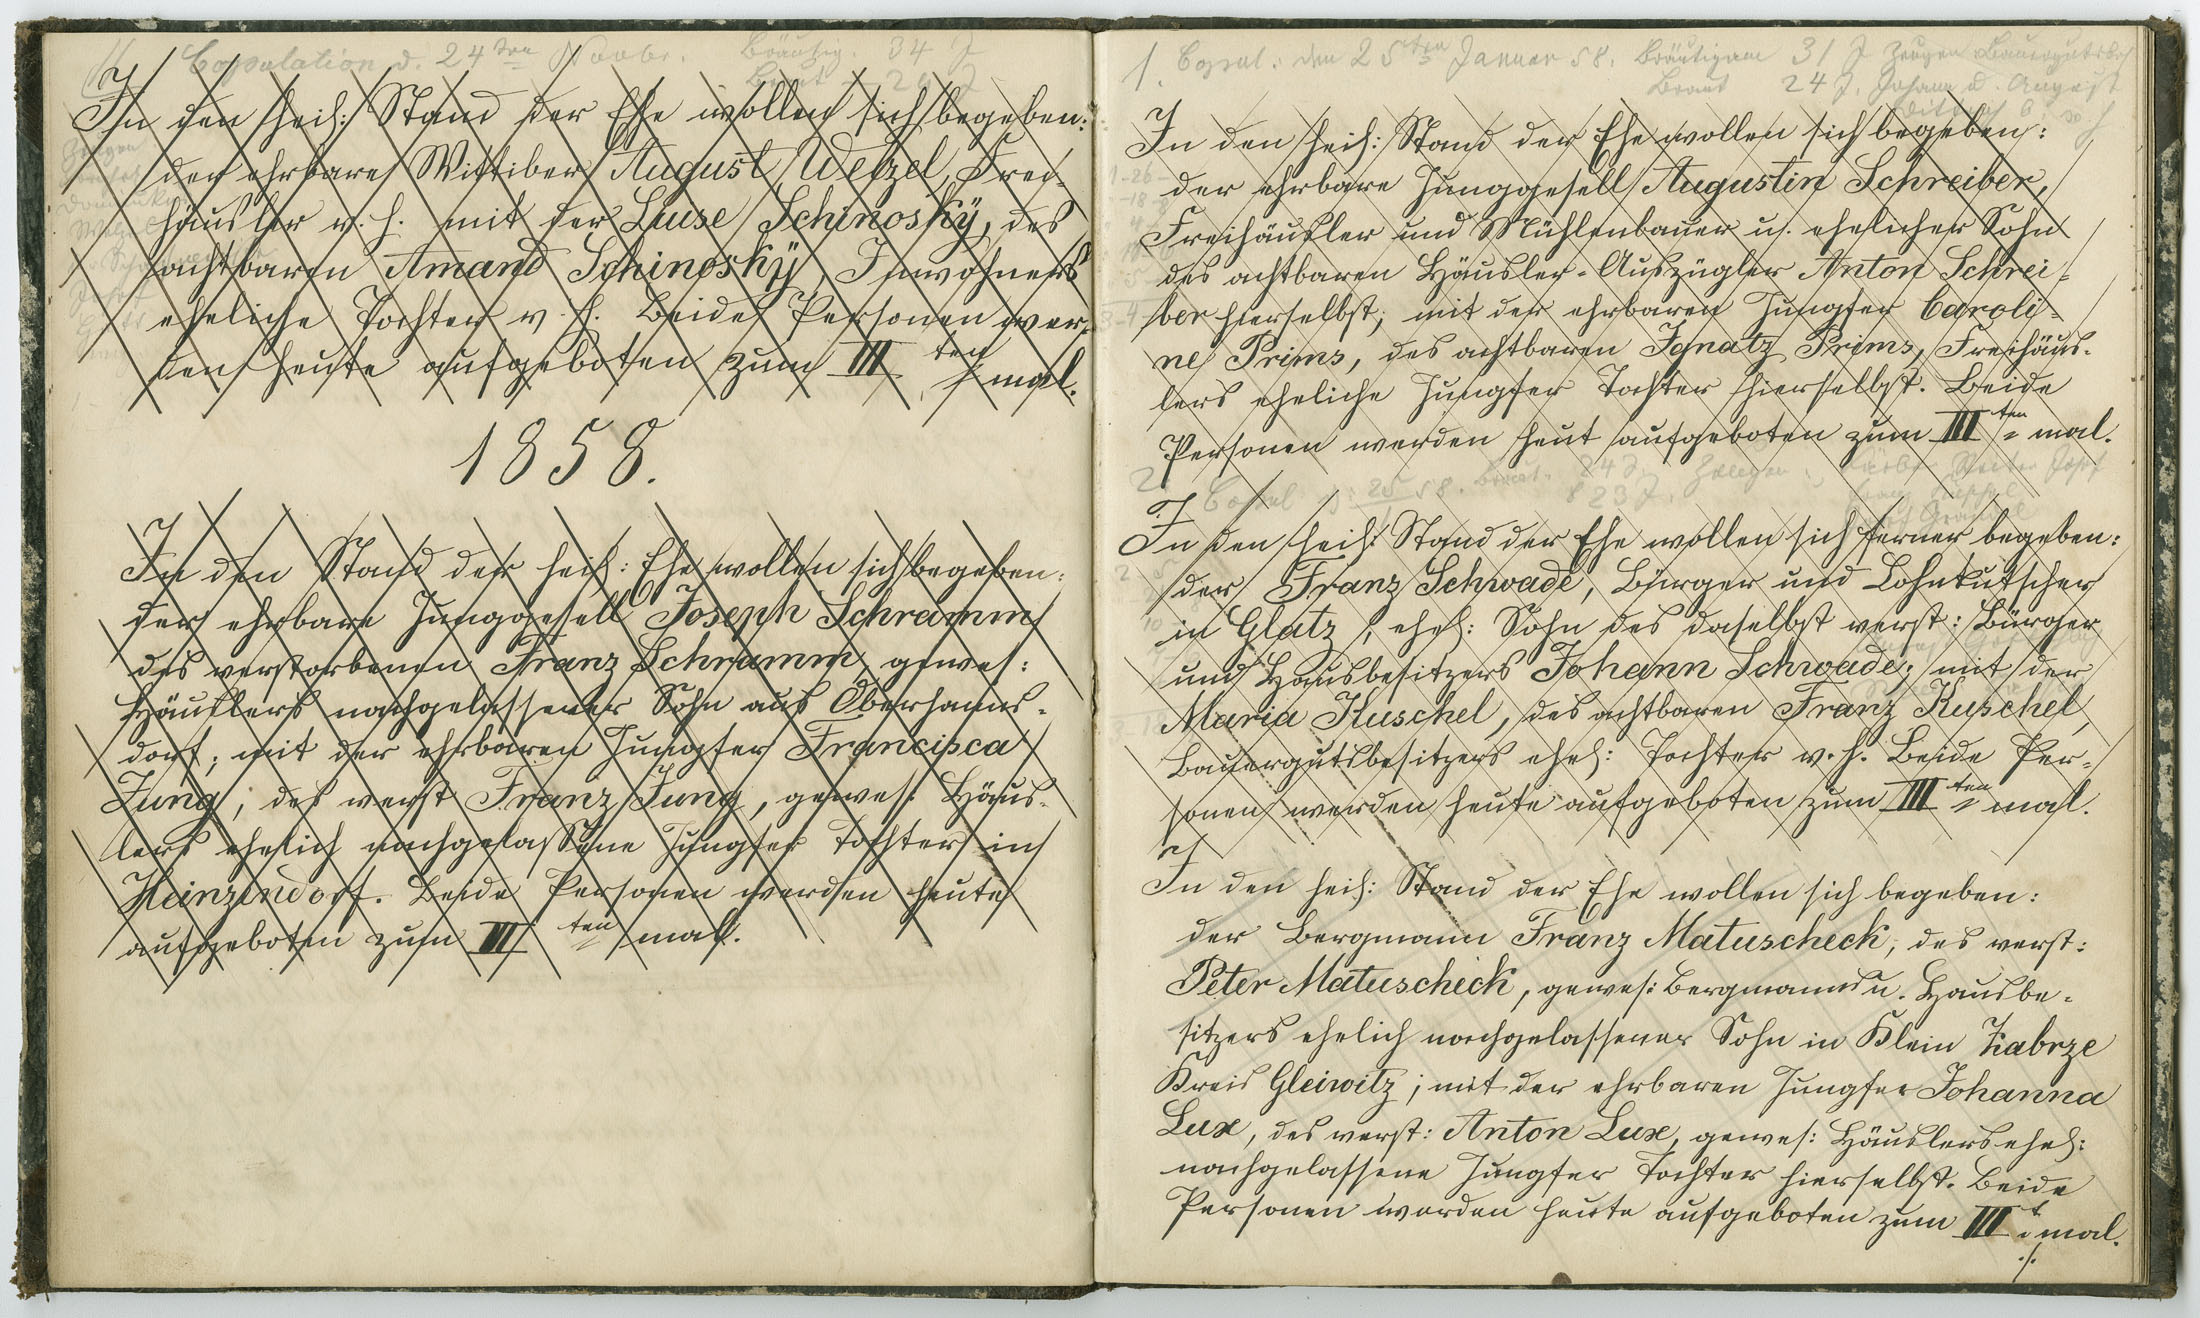 Copulation d. 24ten Novbr. Bräutig. 34 J
Braut 26 J
In den heil: Stand der Ehe wollen sich begeben:
der ehrbare Wittiber August Welzel, Frei-
häusler v. h. mit der Luise Schinoskÿ, des
achtbaren Amand Schinoskÿ, Inwohners
eheliche Tochter v. h. Beide Personen wer-
den heute aufgeboten zum III ten mal.
1858.
In den Stand der heil: Ehe wollen sich begeben:
der ehrbare Junggesell Joseph Schramm
des verstorbenen Franz Schramm, gewes:
Häuslers nachgelassener Sohn aus Oberhanns-
dorf; mit der ehrbaren Jungfer Francisca
Jung, des verst Franz Jung, gewes: Häus-
lers ehelich nachgelassene Jungfer Tochter in
Heinzendorf. Beide Personen werden heute
aufgeboten zum III ten mal.
1. Copul: den 25ten Januar 58. Bräutigam 31 J Zeugen
Braut 24 J. Johann u. August
In den heil: Stand der Ehe wollen sich begeben:
der ehrbare Junggesell Augustin Schreiber,
Freihäusler und Mühlenbauer u. ehelicher Sohn
des achtbaren Häusler-Auszügler Anton Schrei-
ber hierselbst; mit der ehrbaren Jungfer Caroli-
ne Prims, des achtbaren Ignatz Prims, Freihäus-
lers eheliche Jungfer Tochter hierselbst. Beide
Personen werden heut aufgeboten zum III ten mal.
2. Copul 25 58. 24 J. Zeugen:
23 J.
In den heil: Stand der Ehe wollen sich ferner begeben:
der Franz Schwade, Bürger und Lohnkutscher
in Glatz, ehel: Sohn des daselbst verst: Bürger
und Hausbesitzers Johann Schwade; mit der
Maria Kuschel, des achtbaren Franz Kuschel,
Bauergutsbesitzers ehel: Tochter v. h. Beide Per-
sonen werden heute aufgeboten zum III ten mal.
In den heil: Stand der Ehe wollen sich begeben:
der Bergmann Franz Matuscheck, des verst:
Peter Matuscheck, gewes: Bergmanns u. Hausbe-
sitzers ehelich nachgelassener Sohn in Klein Zabrze
Kreis Gleiwitz; mit der ehrbaren Jungfer Johanna
Lux, des verst: Anton Lux, gewes: Häuslers ehel:
nachgelassene Jungfer Tochter hierselbst. Beide
Personen werden heute aufgeboten zum III t mal.
./.